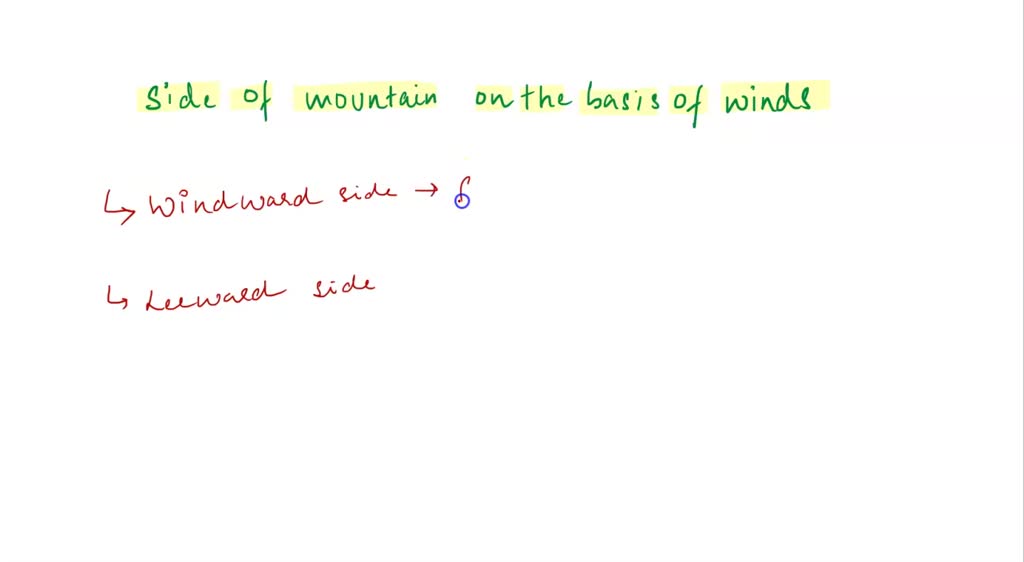 side of mountain on the basis of winds
↳ Windward side →
↳ Leeward side